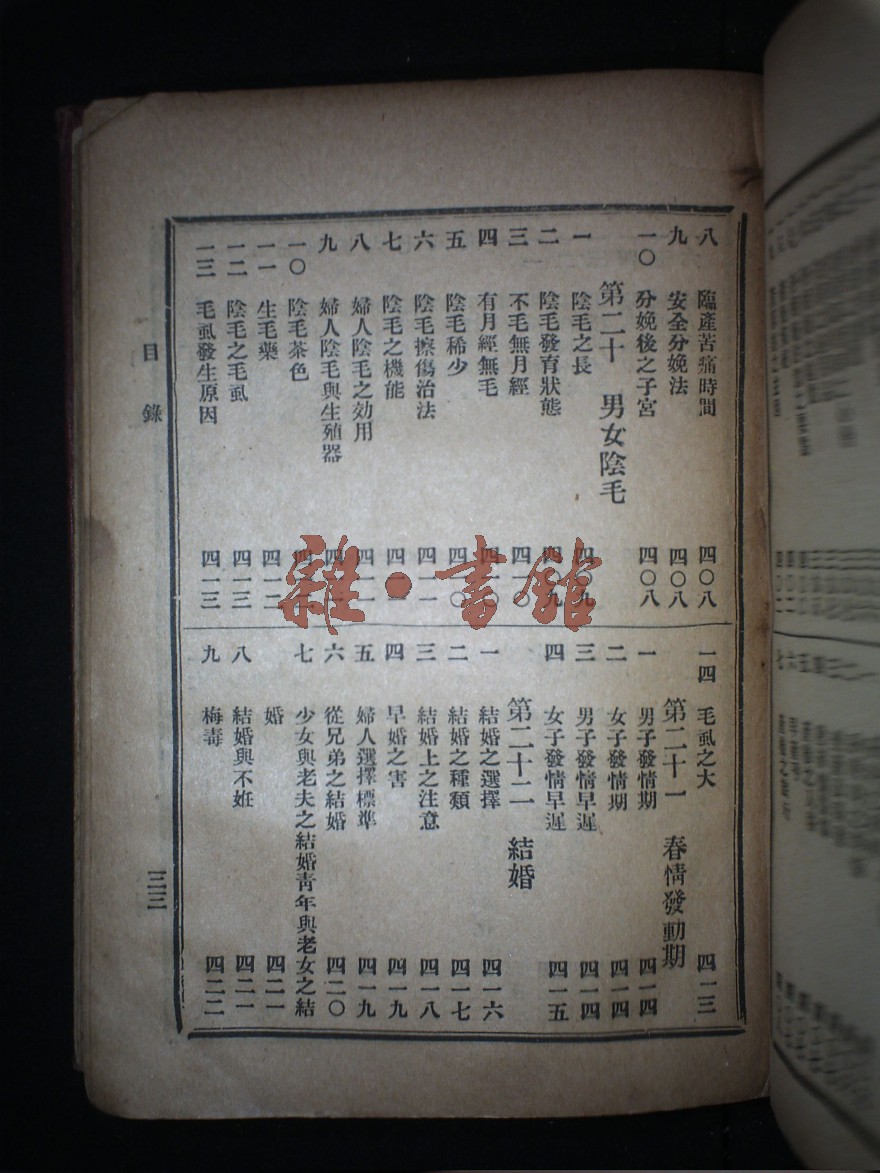 八 臨產苦痛時間 四〇八
九 安全分娩法 四〇八
一〇 分娩後之子宮 四〇八
第二十 男女陰毛
一 陰毛之長 四〇九
二 陰毛發育狀態 四〇九
三 不毛無月經 四一〇
四 有月經無毛 四一〇
五 陰毛稀少 四一〇
六 陰毛擦傷治法 四一一
七 陰毛之機能 四一一
八 婦人陰毛之効用 四一一
九 婦人陰毛與生殖器
一〇 陰毛茶色
一一 生毛藥 四一二
一二 陰毛之毛虱 四一三
一三 毛虱發生原因 四一三
一四 毛虱之大 四一三
第二十一 春情發動期
一 男子發情期 四一四
二 女子發情期 四一四
三 男子發情早遲 四一四
四 女子發情早遲 四一五
第二十二 結婚
一 結婚之選擇 四一六
二 結婚之種類 四一七
三 結婚上之注意 四一八
四 早婚之害 四一九
五 婦人選擇標準 四一九
六 從兄弟之結婚 四二〇
七 少女與老夫之結婚青年與老女之結
婚 四二一
八 結婚與不姙 四二一
九 梅毒 四二二
目錄
三三
雜·書館